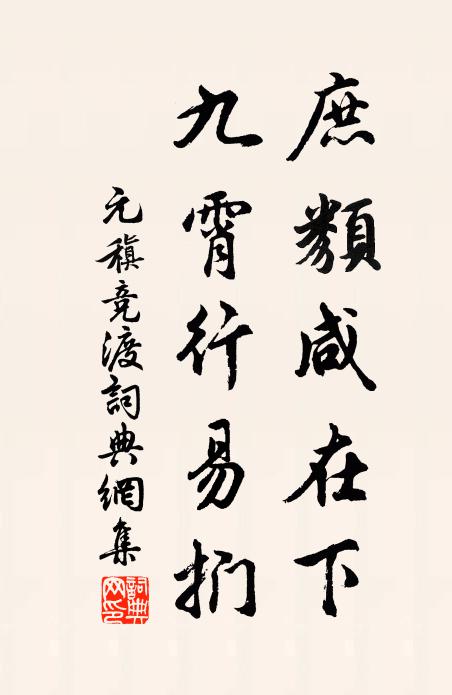 庶類咸在下
九霄行易捫
元稹競渡詞典網集
詞典網印